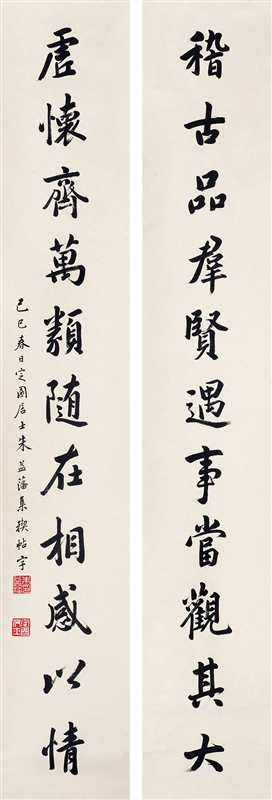 稽古品羣賢遇事當觀其大
虛懷齊萬類隨在相感以情
己巳春日定園居士朱益藩集禊帖字